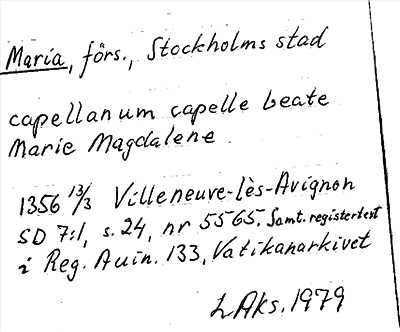 Maria, förs., Stockholms stad
capellanum capelle beate
Marie Magdalene.
1356 13/3 Villeneuve-lès-Avignon
SD 7:1, s. 24, nr 5565. Samt. registertext
i Reg. Avin. 133, Vatikanarkivet
LAks. 1979